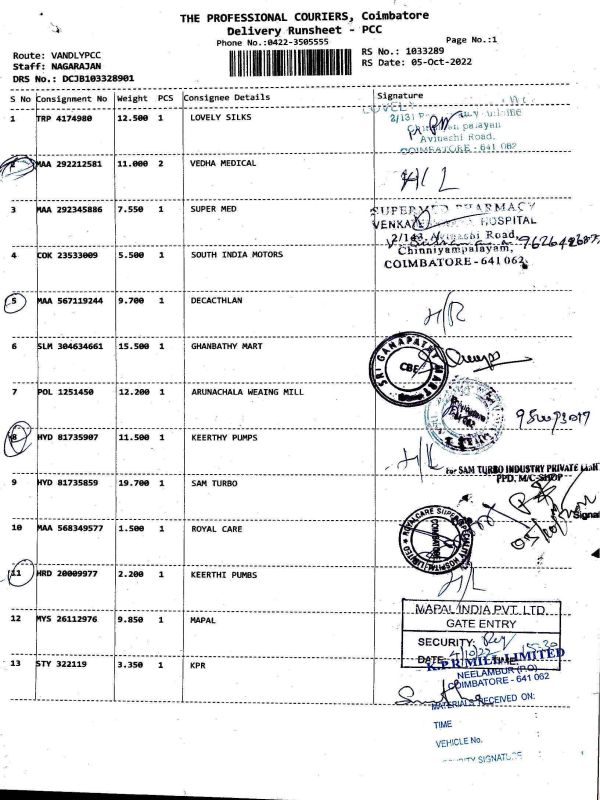 THE PROFESSIONAL COURIERS, Coimbatore
Delivery Runsheet - PCC
Phone No.:0422-3505555
Page No.:1
Route: VANDLYPCC
Staff: NAGARAJAN
DRS No.: DCJB103328901
RS No.: 1033289
RS Date: 05-Oct-2022
S No Consignment No Weight PCS Consignee Details Signature
1 TRP 4174980 12.500 1 LOVELY SILKS
LOVELY
2/131
palayan
Avinashi Road,
COIMBATORE - 641 062
2 MAA 292212581 11.000 2 VEDHA MEDICAL
H/L
3 MAA 292345886 7.550 1 SUPER MED
SUPERMED PHARMACY
VENKA HOSPITAL
2/143, Avinashi Road,
Chinniyampalayam,
COIMBATORE - 641 062
4 COK 23533009 5.500 1 SOUTH INDIA MOTORS
5 MAA 567119244 9.700 1 DECACTHLAN
6 SLM 304634661 15.500 1 GHANBATHY MART
SRI GANAPATHY MART
CBE
7 POL 1251450 12.200 1 ARUNACHALA WEAING MILL
8 HYD 81735907 11.500 1 KEERTHY PUMPS
H/L
9 HYD 81735859 19.700 1 SAM TURBO
for SAM TURBO INDUSTRY PRIVATE
PPD, M/C-SHOP
Signat
10 MAA 568349577 1.500 1 ROYAL CARE
ROYALCARE SUPER SPECIALITY HOSPITAL LIMITED
COIMBATORE
11 HRD 20009977 2.200 1 KEERTHI PUMBS
H/L
12 MYS 26112976 9.850 1 MAPAL
MAPAL INDIA PVT. LTD.
GATE ENTRY
SECURITY:
DATE: TIME: 15.30
13 STY 322119 3.350 1 KPR
K.P.R MILL LIMITED
NEELAMBUR (P.O)
COIMBATORE - 641 062
MATERIALS RECEIVED ON:
TIME
VEHICLE No.
SECURITY SIGNATURE